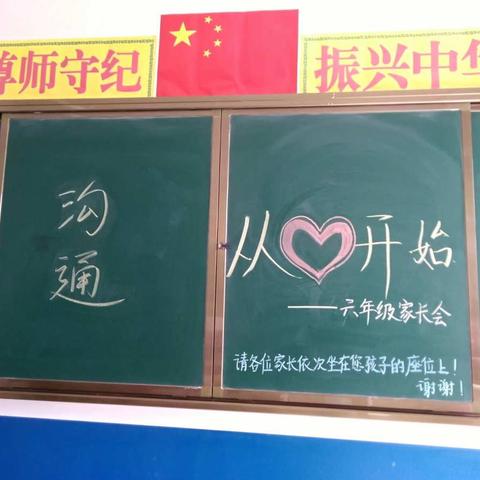 尊师守纪
振兴中华
沟通
从开始
——六年级家长会
请各位家长依次坐在您孩子的座位上！
谢谢！